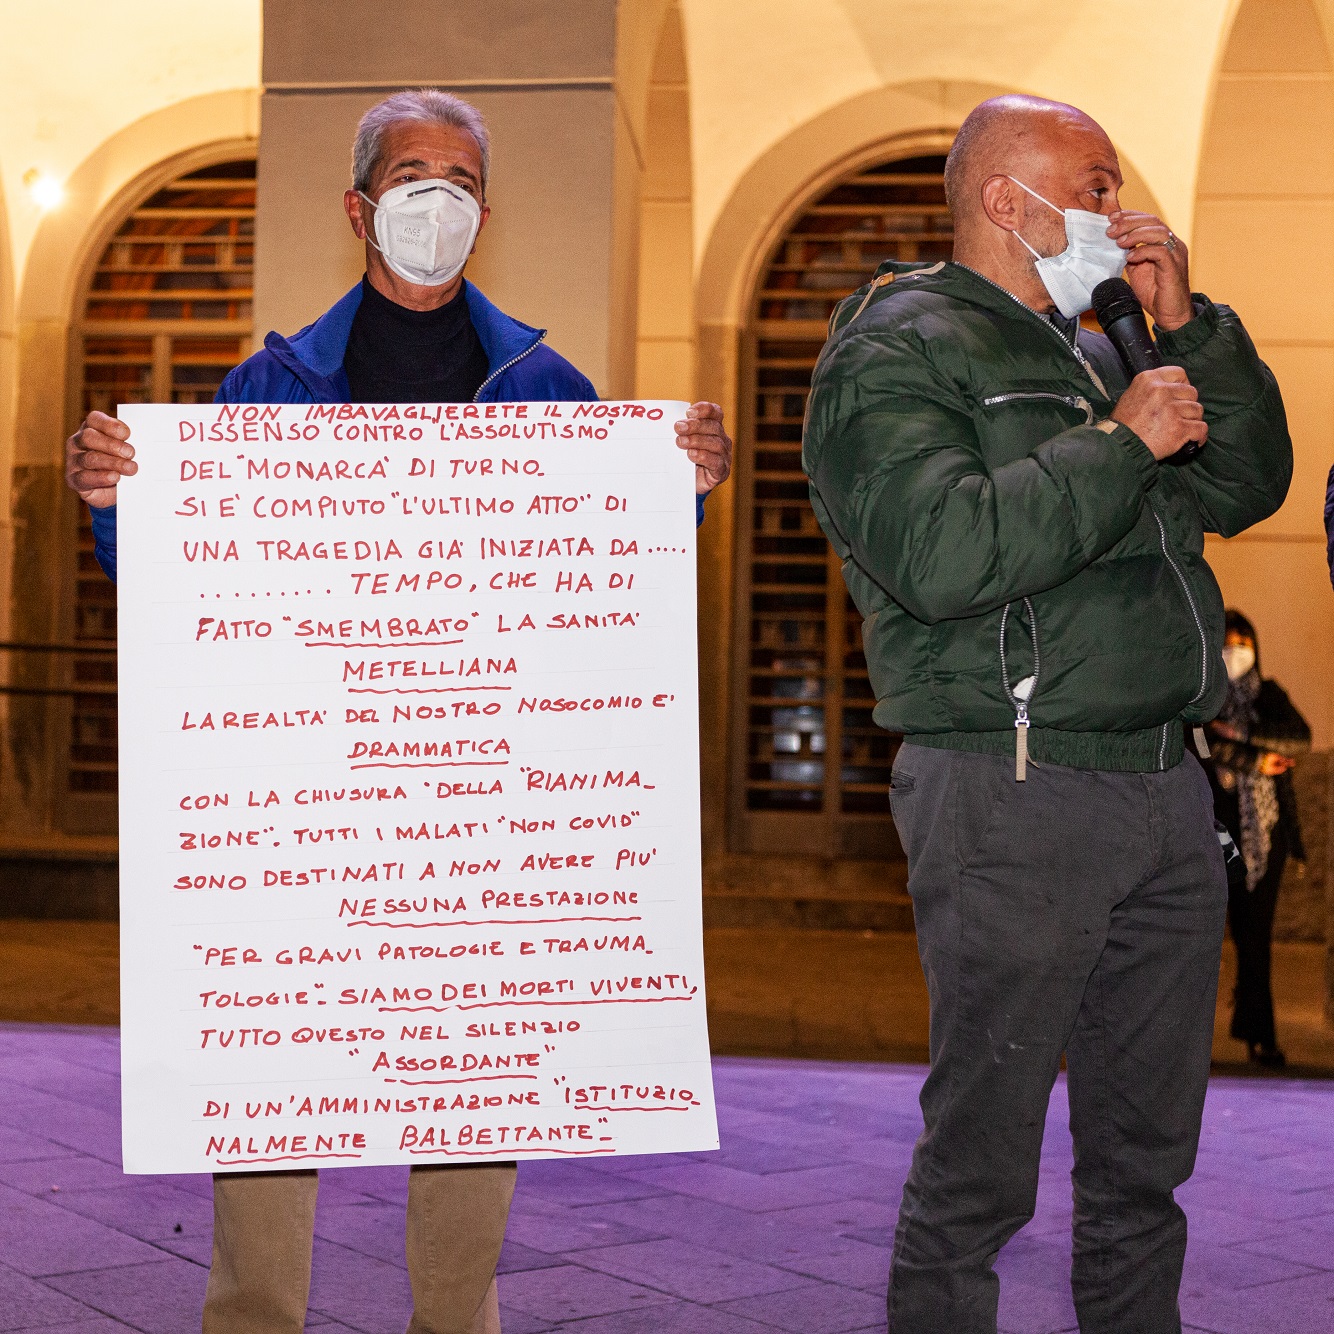 KN95
NON IMBAVAGLIERETE IL NOSTRO
DISSENSO CONTRO "L'ASSOLUTISMO"
DEL "MONARCA" DI TURNO_
SI E' COMPIUTO "L'ULTIMO ATTO" DI
UNA TRAGEDIA GIA' INIZIATA DA .....
......... TEMPO, CHE HA DI
FATTO "SMEMBRATO" LA SANITA'
METELLIANA
LA REALTA' DEL NOSTRO NOSOCOMIO E'
DRAMMATICA
CON LA CHIUSURA "DELLA "RIANIMA_
ZIONE". TUTTI I MALATI "NON COVID"
SONO DESTINATI A NON AVERE PIU'
NESSUNA PRESTAZIONE
"PER GRAVI PATOLOGIE E TRAUMA_
TOLOGIE". SIAMO DEI MORTI VIVENTI,
TUTTO QUESTO NEL SILENZIO
"ASSORDANTE"
DI UN'AMMINISTRAZIONE "ISTITUZIO_
NALMENTE BALBETTANTE"_